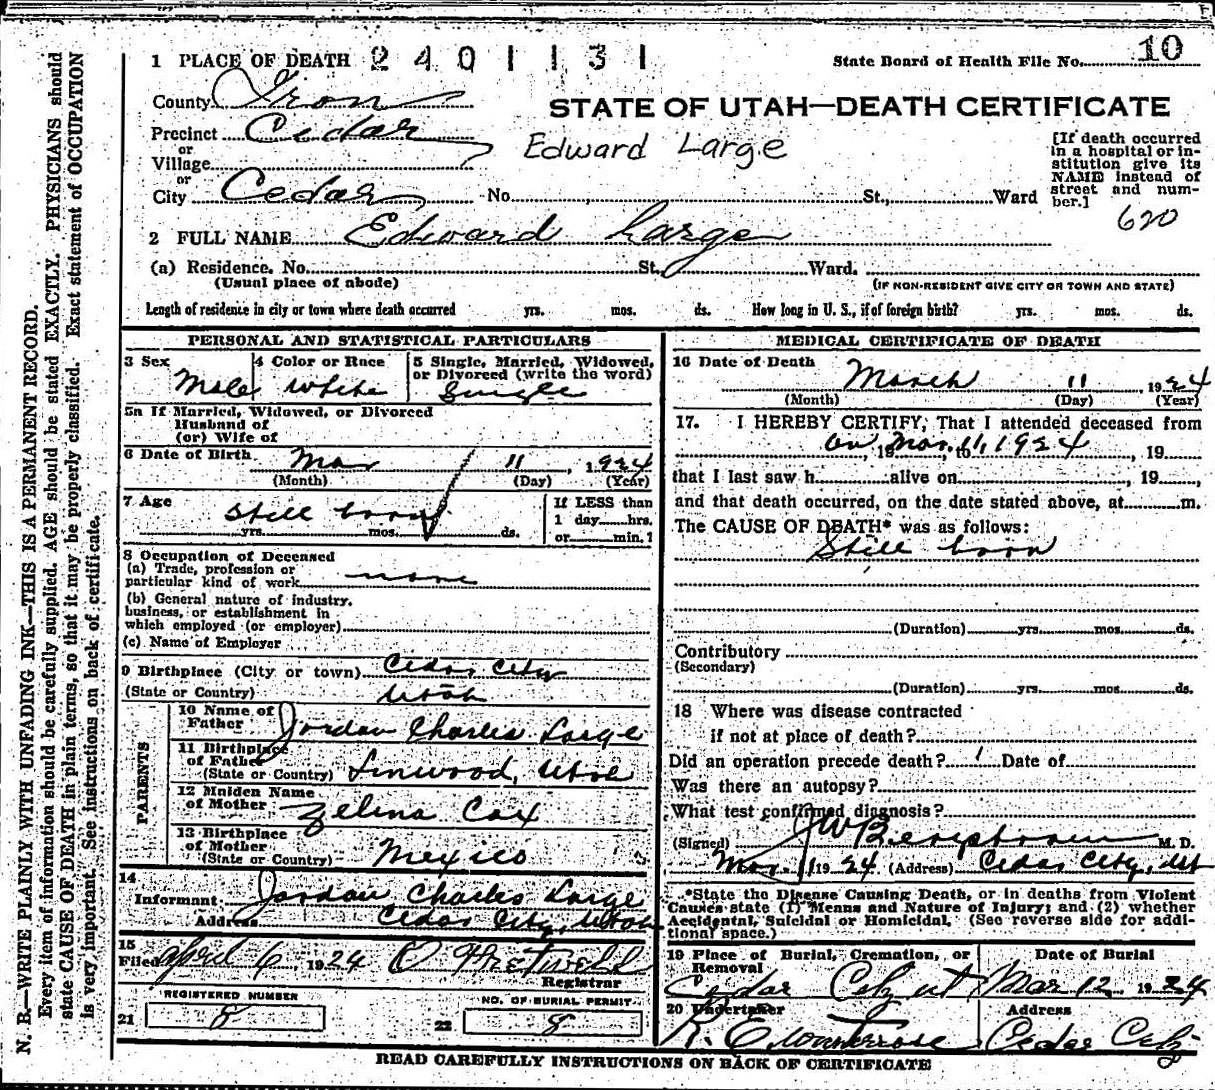 1 PLACE OF DEATH 2 4 0 1 1 3 1
State Board of Health File No. 10
County Iron
STATE OF UTAH—DEATH CERTIFICATE
Precinct Cedar
or
Village
Edward Large
[If death occurred in a hospital or institution give its NAME instead of street and number.]
or
City Cedar No. St., Ward
620
2 FULL NAME Edward Large
(a) Residence. No. St. Ward.
(Usual place of abode)
(IF NON-RESIDENT GIVE CITY OR TOWN AND STATE)
Length of residence in city or town where death occurred yrs. mos. ds. How long in U. S., if of foreign birth? yrs. mos. ds.
PERSONAL AND STATISTICAL PARTICULARS
3 Sex 4 Color or Race 5 Single, Married, Widowed,
or Divorced (write the word)
Male White Single
5a If Married, Widowed, or Divorced
Husband of
(or) Wife of
6 Date of Birth Mar 11, 1924
(Month) (Day) (Year)
7 Age If LESS than
Still born 1 day hrs.
yrs. mos. ds. or min.?
8 Occupation of Deceased
(a) Trade, profession or
particular kind of work none
(b) General nature of industry,
business, or establishment in
which employed (or employer)
(c) Name of Employer
9 Birthplace (City or town) Cedar City
(State or Country) Utah
PARENTS
10 Name of
Father Jordan Charles Large
11 Birthplace
of Father
(State or Country) Linwood, Utah
12 Maiden Name
of Mother Zelma Cox
13 Birthplace
of Mother
(State or Country) Mexico
14
Informant Jordan Charles Large
Address Cedar City, Utah
15
Filed April 6 1924
Registrar
REGISTERED NUMBER
21 8
NO. OF BURIAL PERMIT
22 8
MEDICAL CERTIFICATE OF DEATH
16 Date of Death
March 11, 1924
(Month) (Day) (Year)
17. I HEREBY CERTIFY, That I attended deceased from
on Mar. 11, 1924, 19 to, 19
that I last saw h alive on, 19,
and that death occurred, on the date stated above, at m.
The CAUSE OF DEATH* was as follows:
Still born
(Duration) yrs. mos. ds.
Contributory
(Secondary)
(Duration) yrs. mos. ds.
18 Where was disease contracted
if not at place of death?
Did an operation precede death? Date of
Was there an autopsy?
What test confirmed diagnosis?
(Signed) J W Bergstrom M. D.
Mar. 11 1924 (Address) Cedar City, Ut
*State the Disease Causing Death, or in deaths from Violent
Causes state (1) Means and Nature of Injury; and (2) whether
Accidental, Suicidal or Homicidal. (See reverse side for addi-
tional space.)
19 Place of Burial, Cremation, or Date of Burial
Removal
Cedar City Ut Mar 12 1924
20 Undertaker Address
Cedar City
READ CAREFULLY INSTRUCTIONS ON BACK OF CERTIFICATE
N. B.—WRITE PLAINLY WITH UNFADING INK—THIS IS A PERMANENT RECORD.
Every item of information should be carefully supplied. AGE should be stated EXACTLY. PHYSICIANS should
state CAUSE OF DEATH in plain terms, so that it may be properly classified. Exact statement of OCCUPATION
is very important. See instructions on back of certificate.